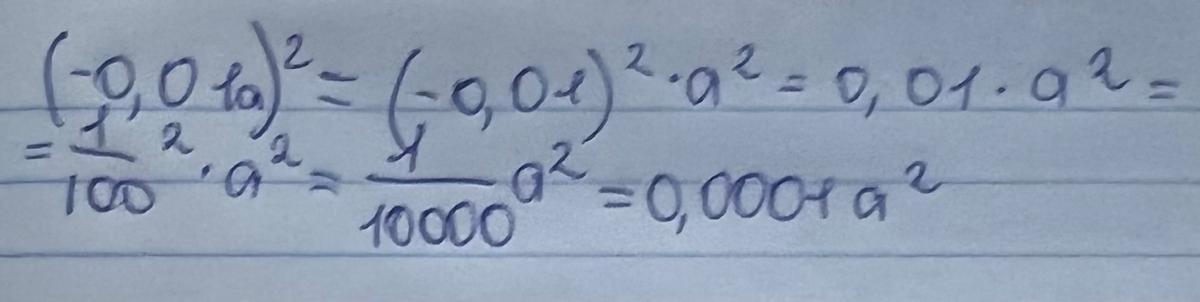 (-0,01a)² = (-0,01)² · a² = 0,01 · a² =
= 1/100 ² · a² = 1/10000 a² = 0,0001a²